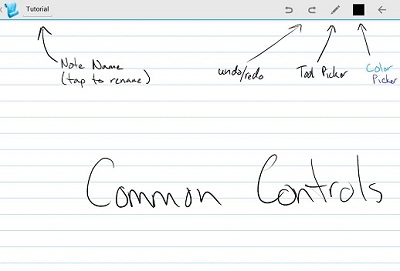 Tutorial
Note Name
(tap to rename)
undo/redo
Tool Picker
Color
Picker
Common Controls